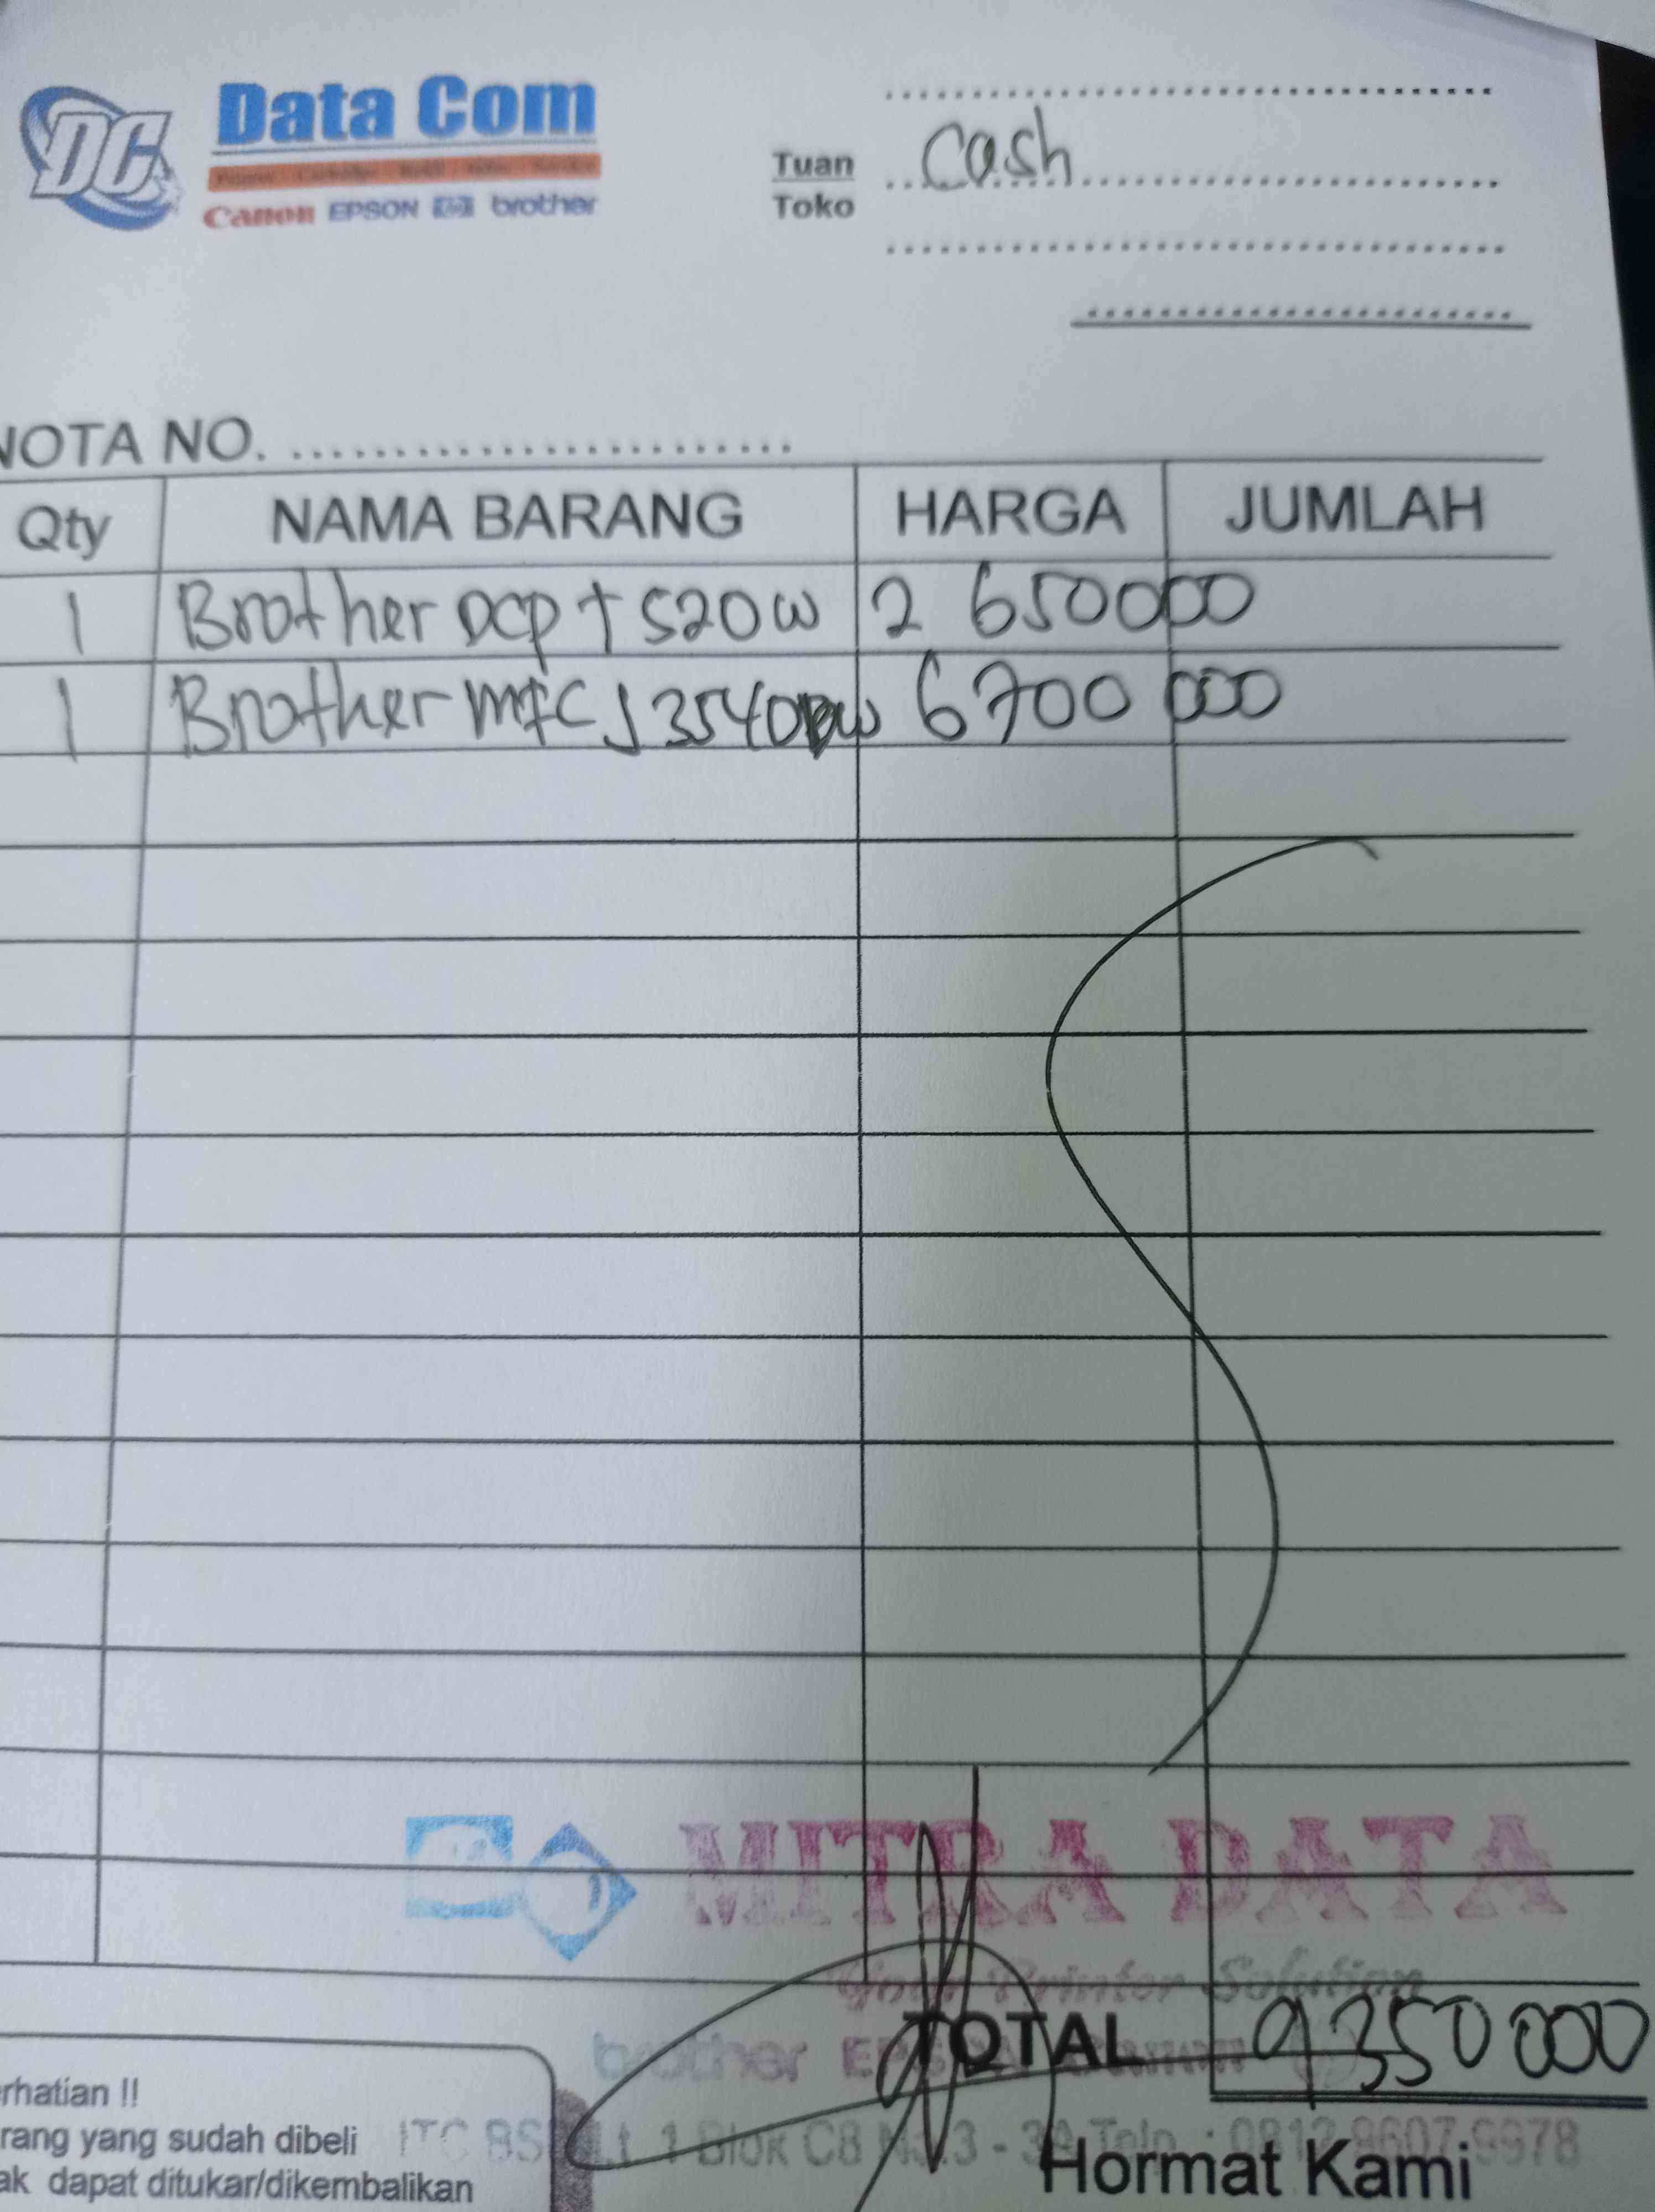 DC
Data Com
Canon EPSON hp brother
Tuan Cash
Toko
NOTA NO.
Qty NAMA BARANG HARGA JUMLAH
1 Brother DCP T 520W 2 650000
1 Brother MFC J3540DW 6700 000
MITRA DATA
Your Printer Solution
TOTAL 9 350 000
brother EPSON
rhatian !!
rang yang sudah dibeli
ak dapat ditukar/dikembalikan
ITC BSD Lt. 1 Blok C8 No.3 - 3A Telp. : 0812 9607 9978
Hormat Kami